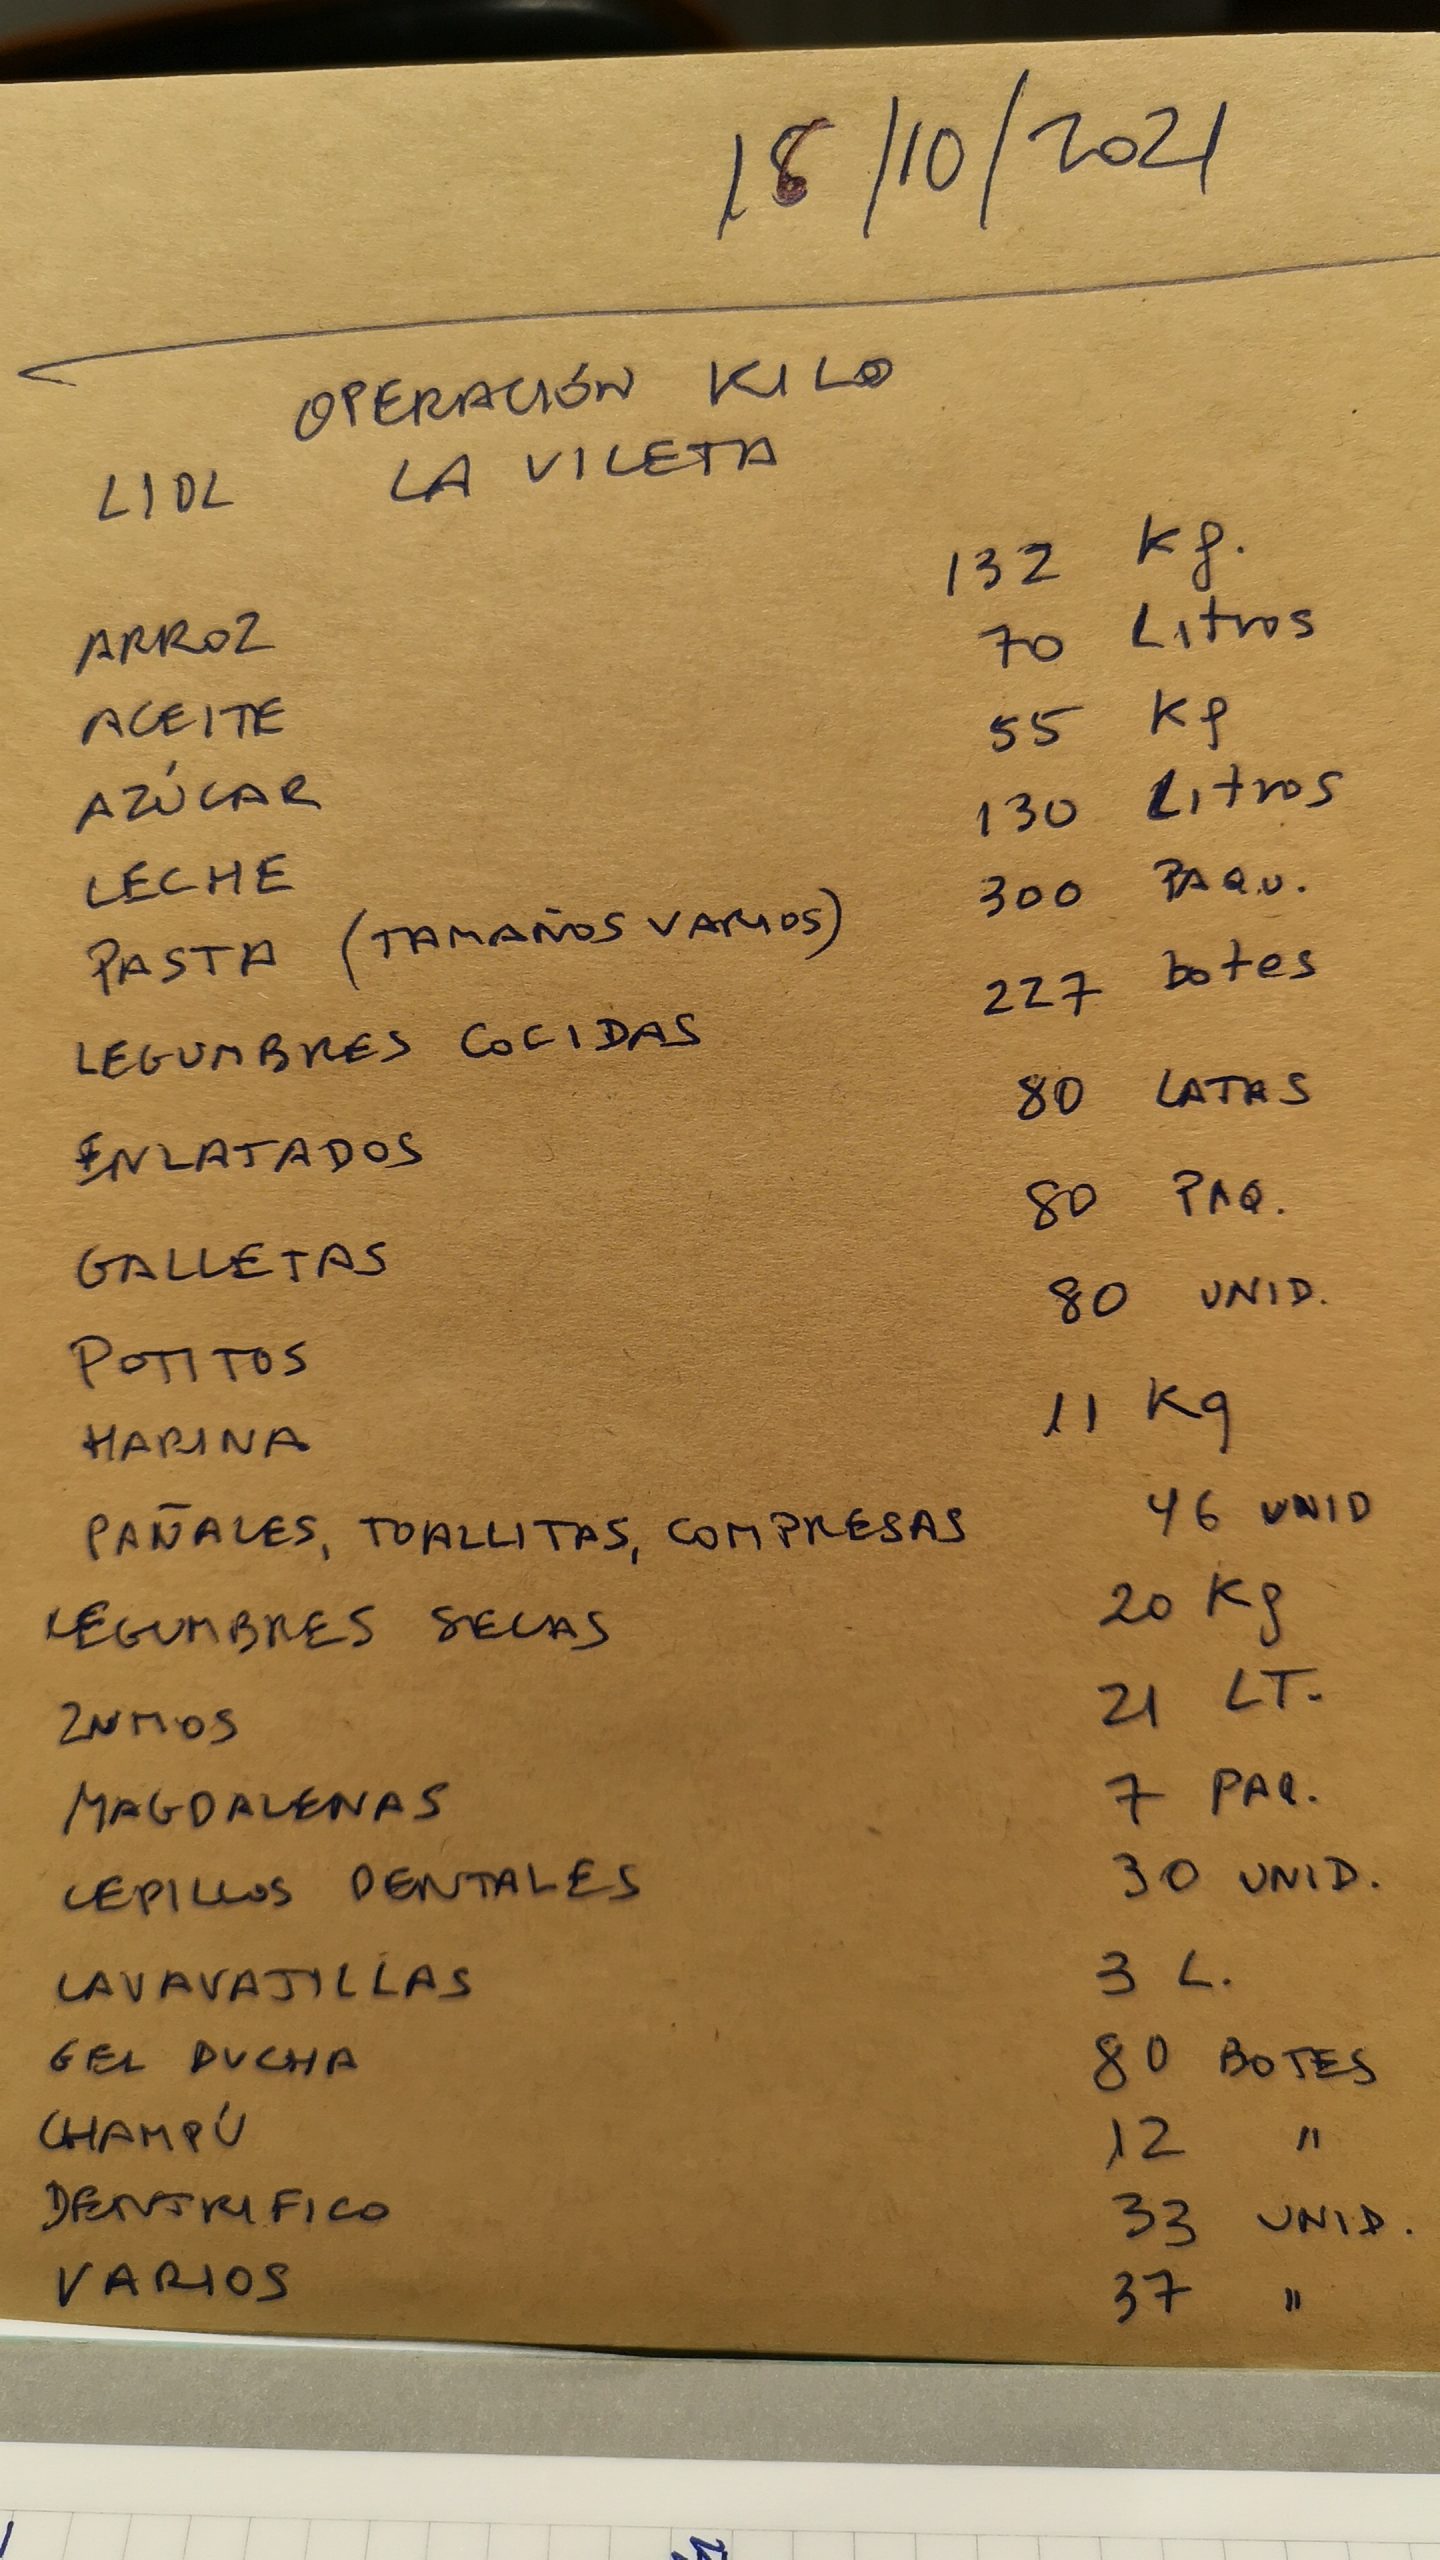 18/10/2021
OPERACIÓN KILO
LIDL LA VILETA
ARROZ 132 Kg.
ACEITE 70 Litros
AZÚCAR 55 Kg
LECHE 130 Litros
PASTA (TAMAÑOS VARIOS) 300 PAQU.
LEGUMBRES COCIDAS 227 botes
ENLATADOS 80 LATAS
GALLETAS 80 PAQ.
POTITOS 80 UNID.
HARINA 11 Kg
PAÑALES, TOALLITAS, COMPRESAS 46 UNID
LEGUMBRES SECAS 20 Kg
ZUMOS 21 LT.
MAGDALENAS 7 PAQ.
CEPILLOS DENTALES 30 UNID.
LAVAVAJILLAS 3 L.
GEL DUCHA 80 BOTES
CHAMPÚ 12 "
DENTRIFICO 33 UNID.
VARIOS 37 "